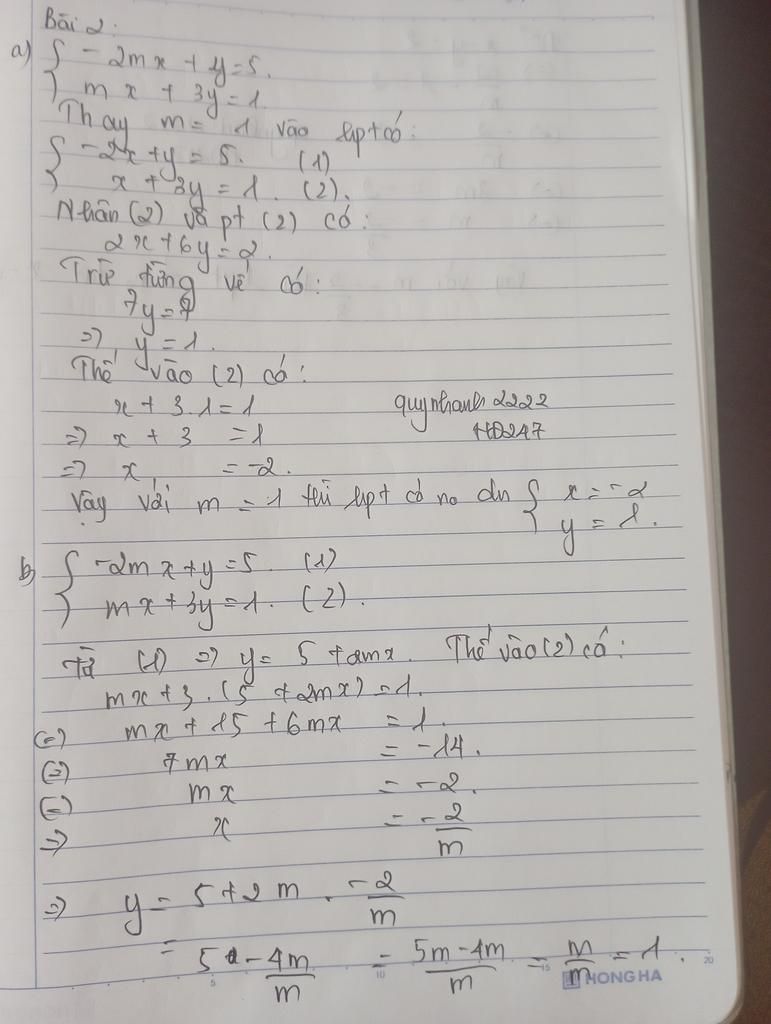 Bài 2.
a) { -2mx + y = 5.
mx + 3y = 1.
Thay m = 1 vào hpt có:
{ -2x + y = 5. (1)
x + 3y = 1. (2).
Nhân (2) và pt (2) có:
2x + 6y = 2.
Trừ từng vế có:
7y = 7
=> y = 1.
Thế vào (2) có:
x + 3.1 = 1
quynhanh 2222
=> x + 3 = 1
HD247
=> x = -2.
Vậy với m = 1 thì hpt có no dn { x = -2
y = 1.
b) { -2mx + y = 5. (1)
mx + 3y = 1. (2).
Từ (1) => y = 5 + 2mx. Thế vào (2) có:
mx + 3.(5 + 2mx) = 1.
(=) mx + 15 + 6mx = 1.
(=) 7mx = -14.
(=) mx = -2.
=> x = -2/m
=> y = 5 + 2m . -2/m
= 5 - 4m/m = 5m - 4m/m = m/m = 1.
5 10 15 20
HONG HA